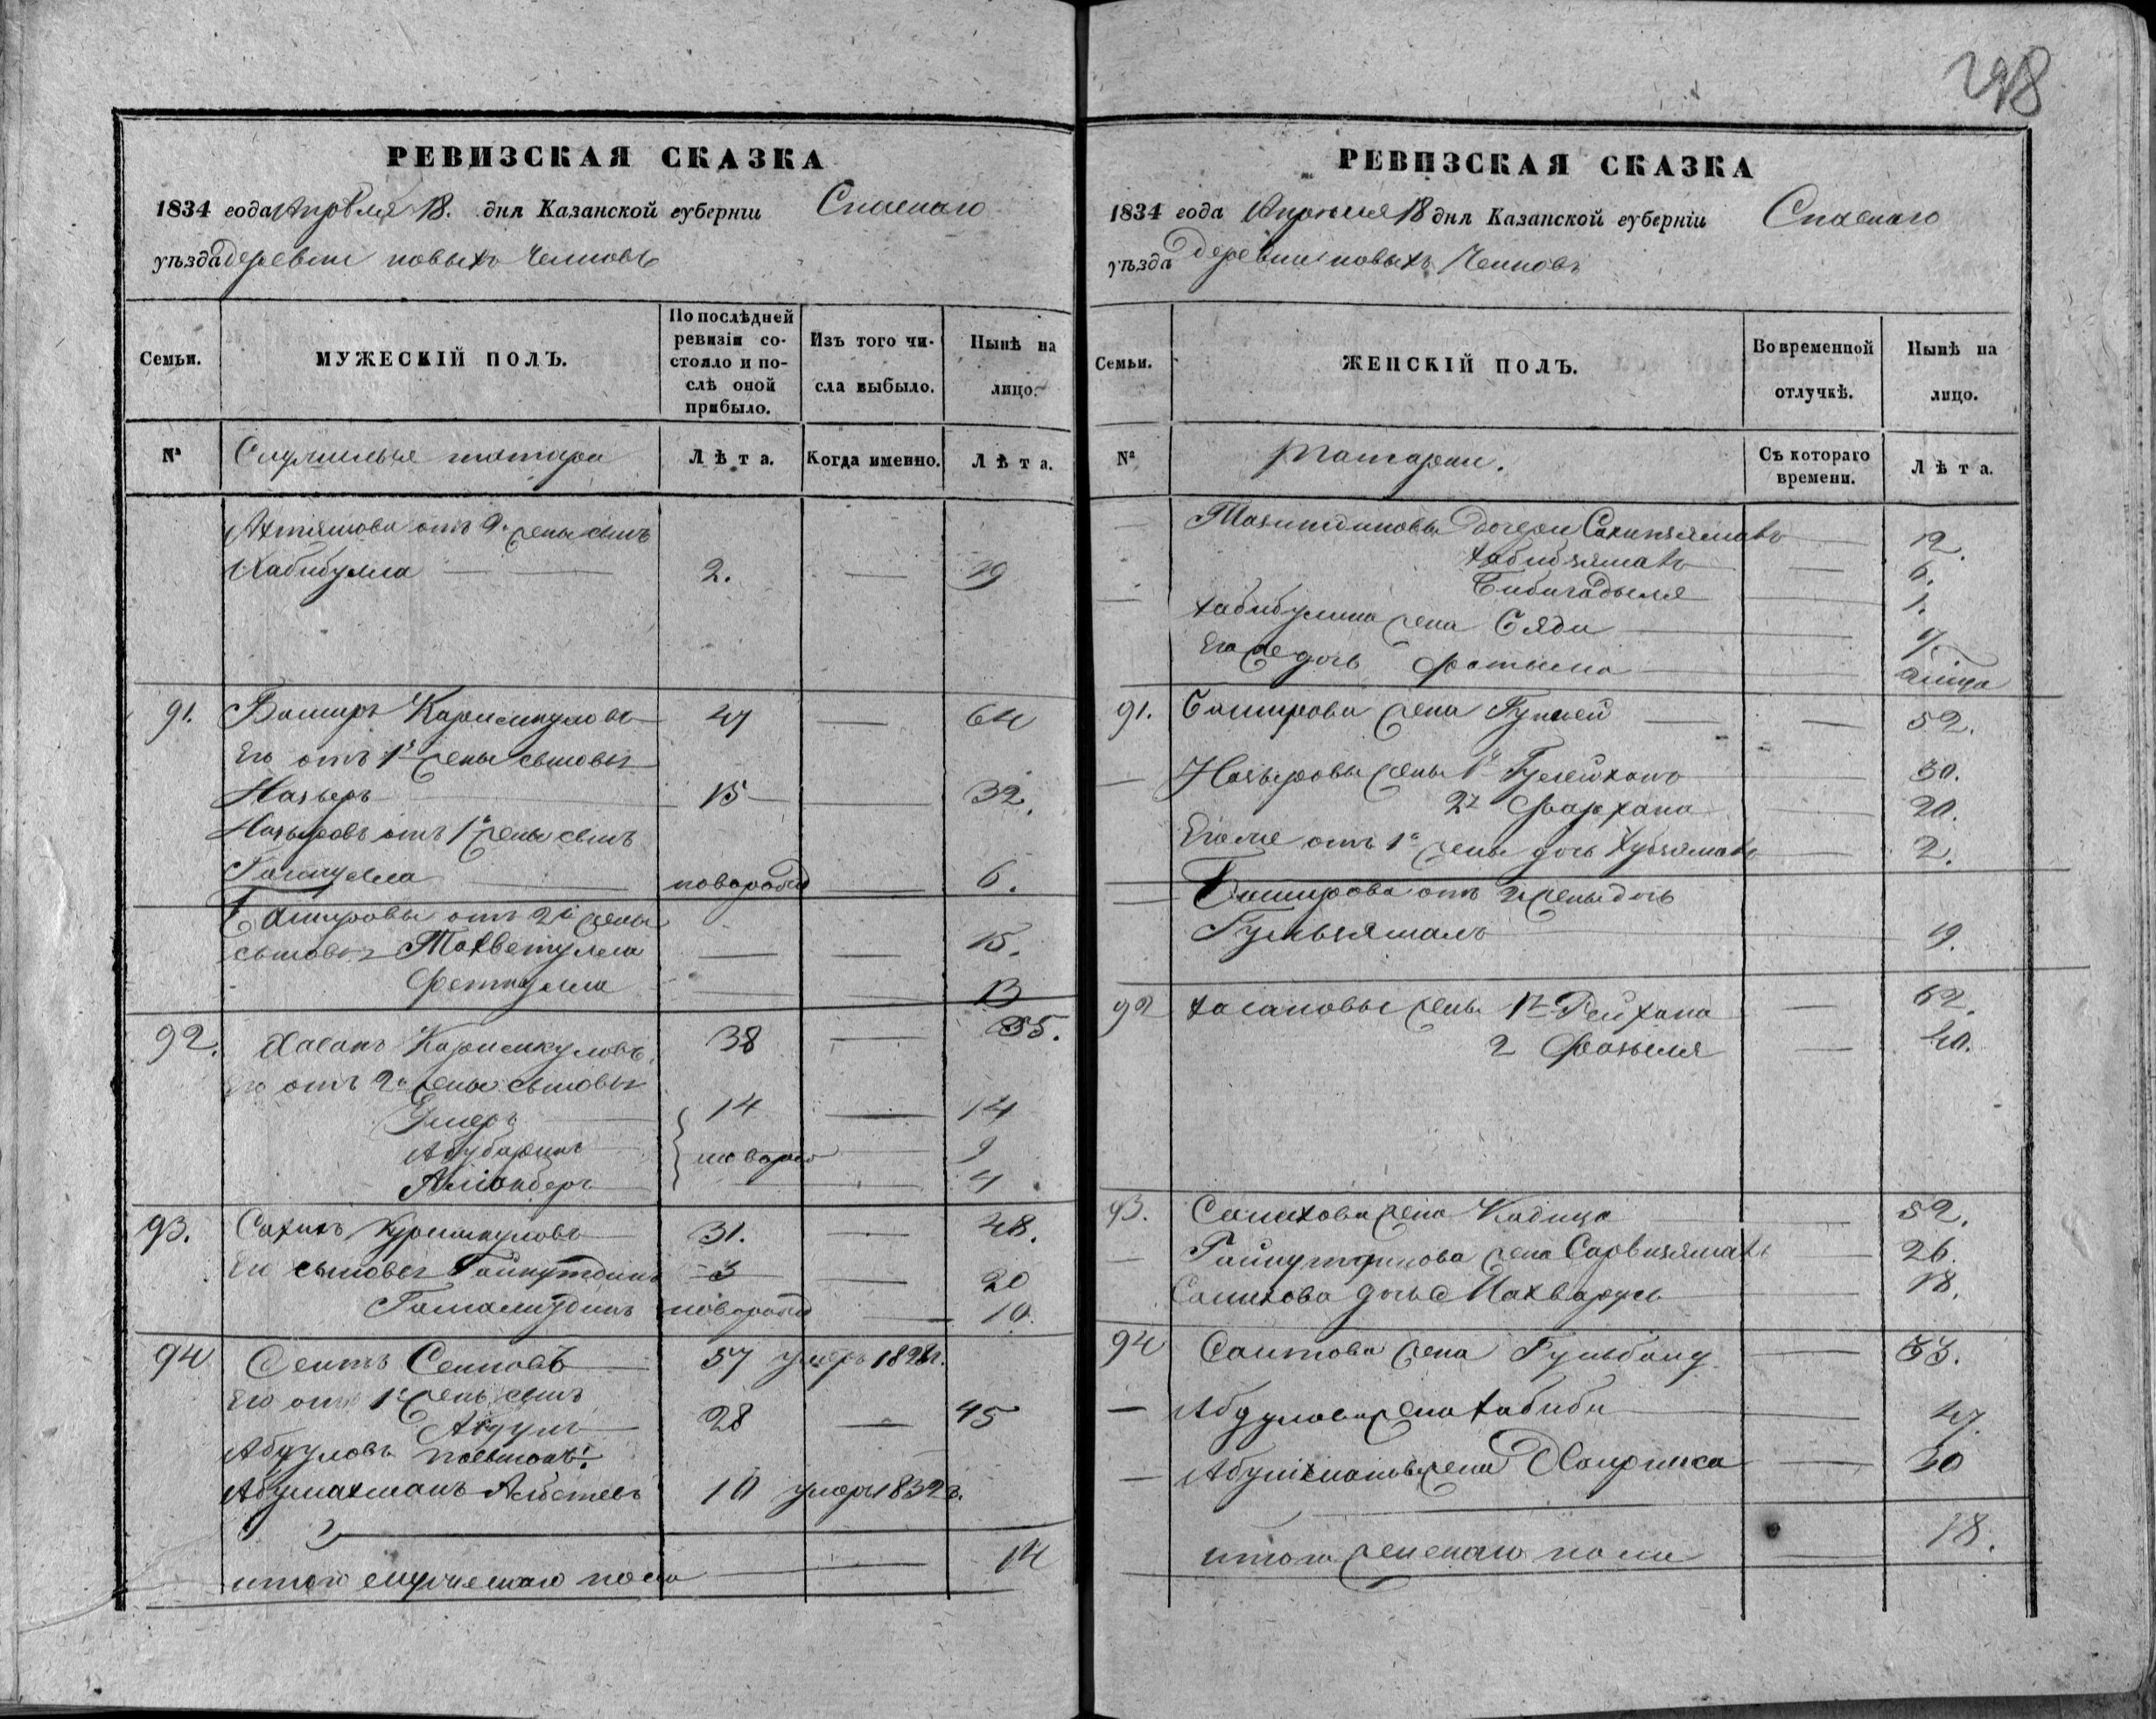 298
РЕВИЗСКАЯ СКАЗКА
1834 года Апреля 18. дня Казанской губерніи Спаскаго
уѣзда деревни новыхъ Челновъ
Семьи.
МУЖЕСКІЙ ПОЛЪ.
По послѣдней ревизіи состояло и послѣ оной прибыло.
Изъ того числа выбыло.
Нынѣ на лицо.
№
Служилыя татара
Лѣта.
Когда именно.
Лѣта.
Ахтямова отъ 2й жены сынъ
Хабибулла — 2. — 19
91. Баширъ Каримкуловъ 47 — 64
Его отъ 1й жены сыновья
Назыръ 15 — 32.
Назыровъ отъ 1й жены сынъ
новорожд — 6.
Башировы отъ 2й жены
сыновья Тохветулла — — 15.
Феткулла — — 13
92. Хасанъ Каримкуловъ 38 — 55.
Его отъ 2й жены сыновья
Умеръ 14 — 14
Абубакиръ новорож 9
4
93. Салихъ Куримкуловъ 31. — 48.
Его сыновья Гайнутдинъ 3 — 20
Гамалитдинъ новорожд — 10.
94 Сеитъ Сеитовъ 57 умеръ 182
Его отъ 1й жены сынъ
Абдулъ 28 — 45
Абдуловъ
10 умеръ 1832 г.
итого мужескаго пола — 14
РЕВИЗСКАЯ СКАЗКА
1834 года Апреля 18 дня Казанской губерніи Спаскаго
уѣзда Деревни новыхъ Челновъ
Семьи.
ЖЕНСКІЙ ПОЛЪ.
Во временной отлучкѣ.
Нынѣ на лицо.
№
татарки.
Съ котораго времени.
Лѣта.
Дочери 12.
Хабибзямалъ — 6.
Бибигадыля 1.
Хабибулина жена Сяди
Его же дочь Фатыма
91. Баширова жена — 52.
Назыровы жены 1я Гулейханъ 30.
2я Фархана 20.
Его же отъ 1й жены дочь Хубзямалъ 2.
Баширова отъ 2й жены дочь
Гульзямалъ 19.
92 Хасановы жены 1я Рейхана — 62.
2 Фазыля — 40.
93. Салихова жена Хадица — 52.
— Гайнутдинова жена Сарвизямалъ — 26.
Салихова дочь Махваруы — 18.
94 Саитова жена Гульбану — 53.
— Абдулова жена Хабиби — 47.
— жена — 30
итого женскаго пола 18.